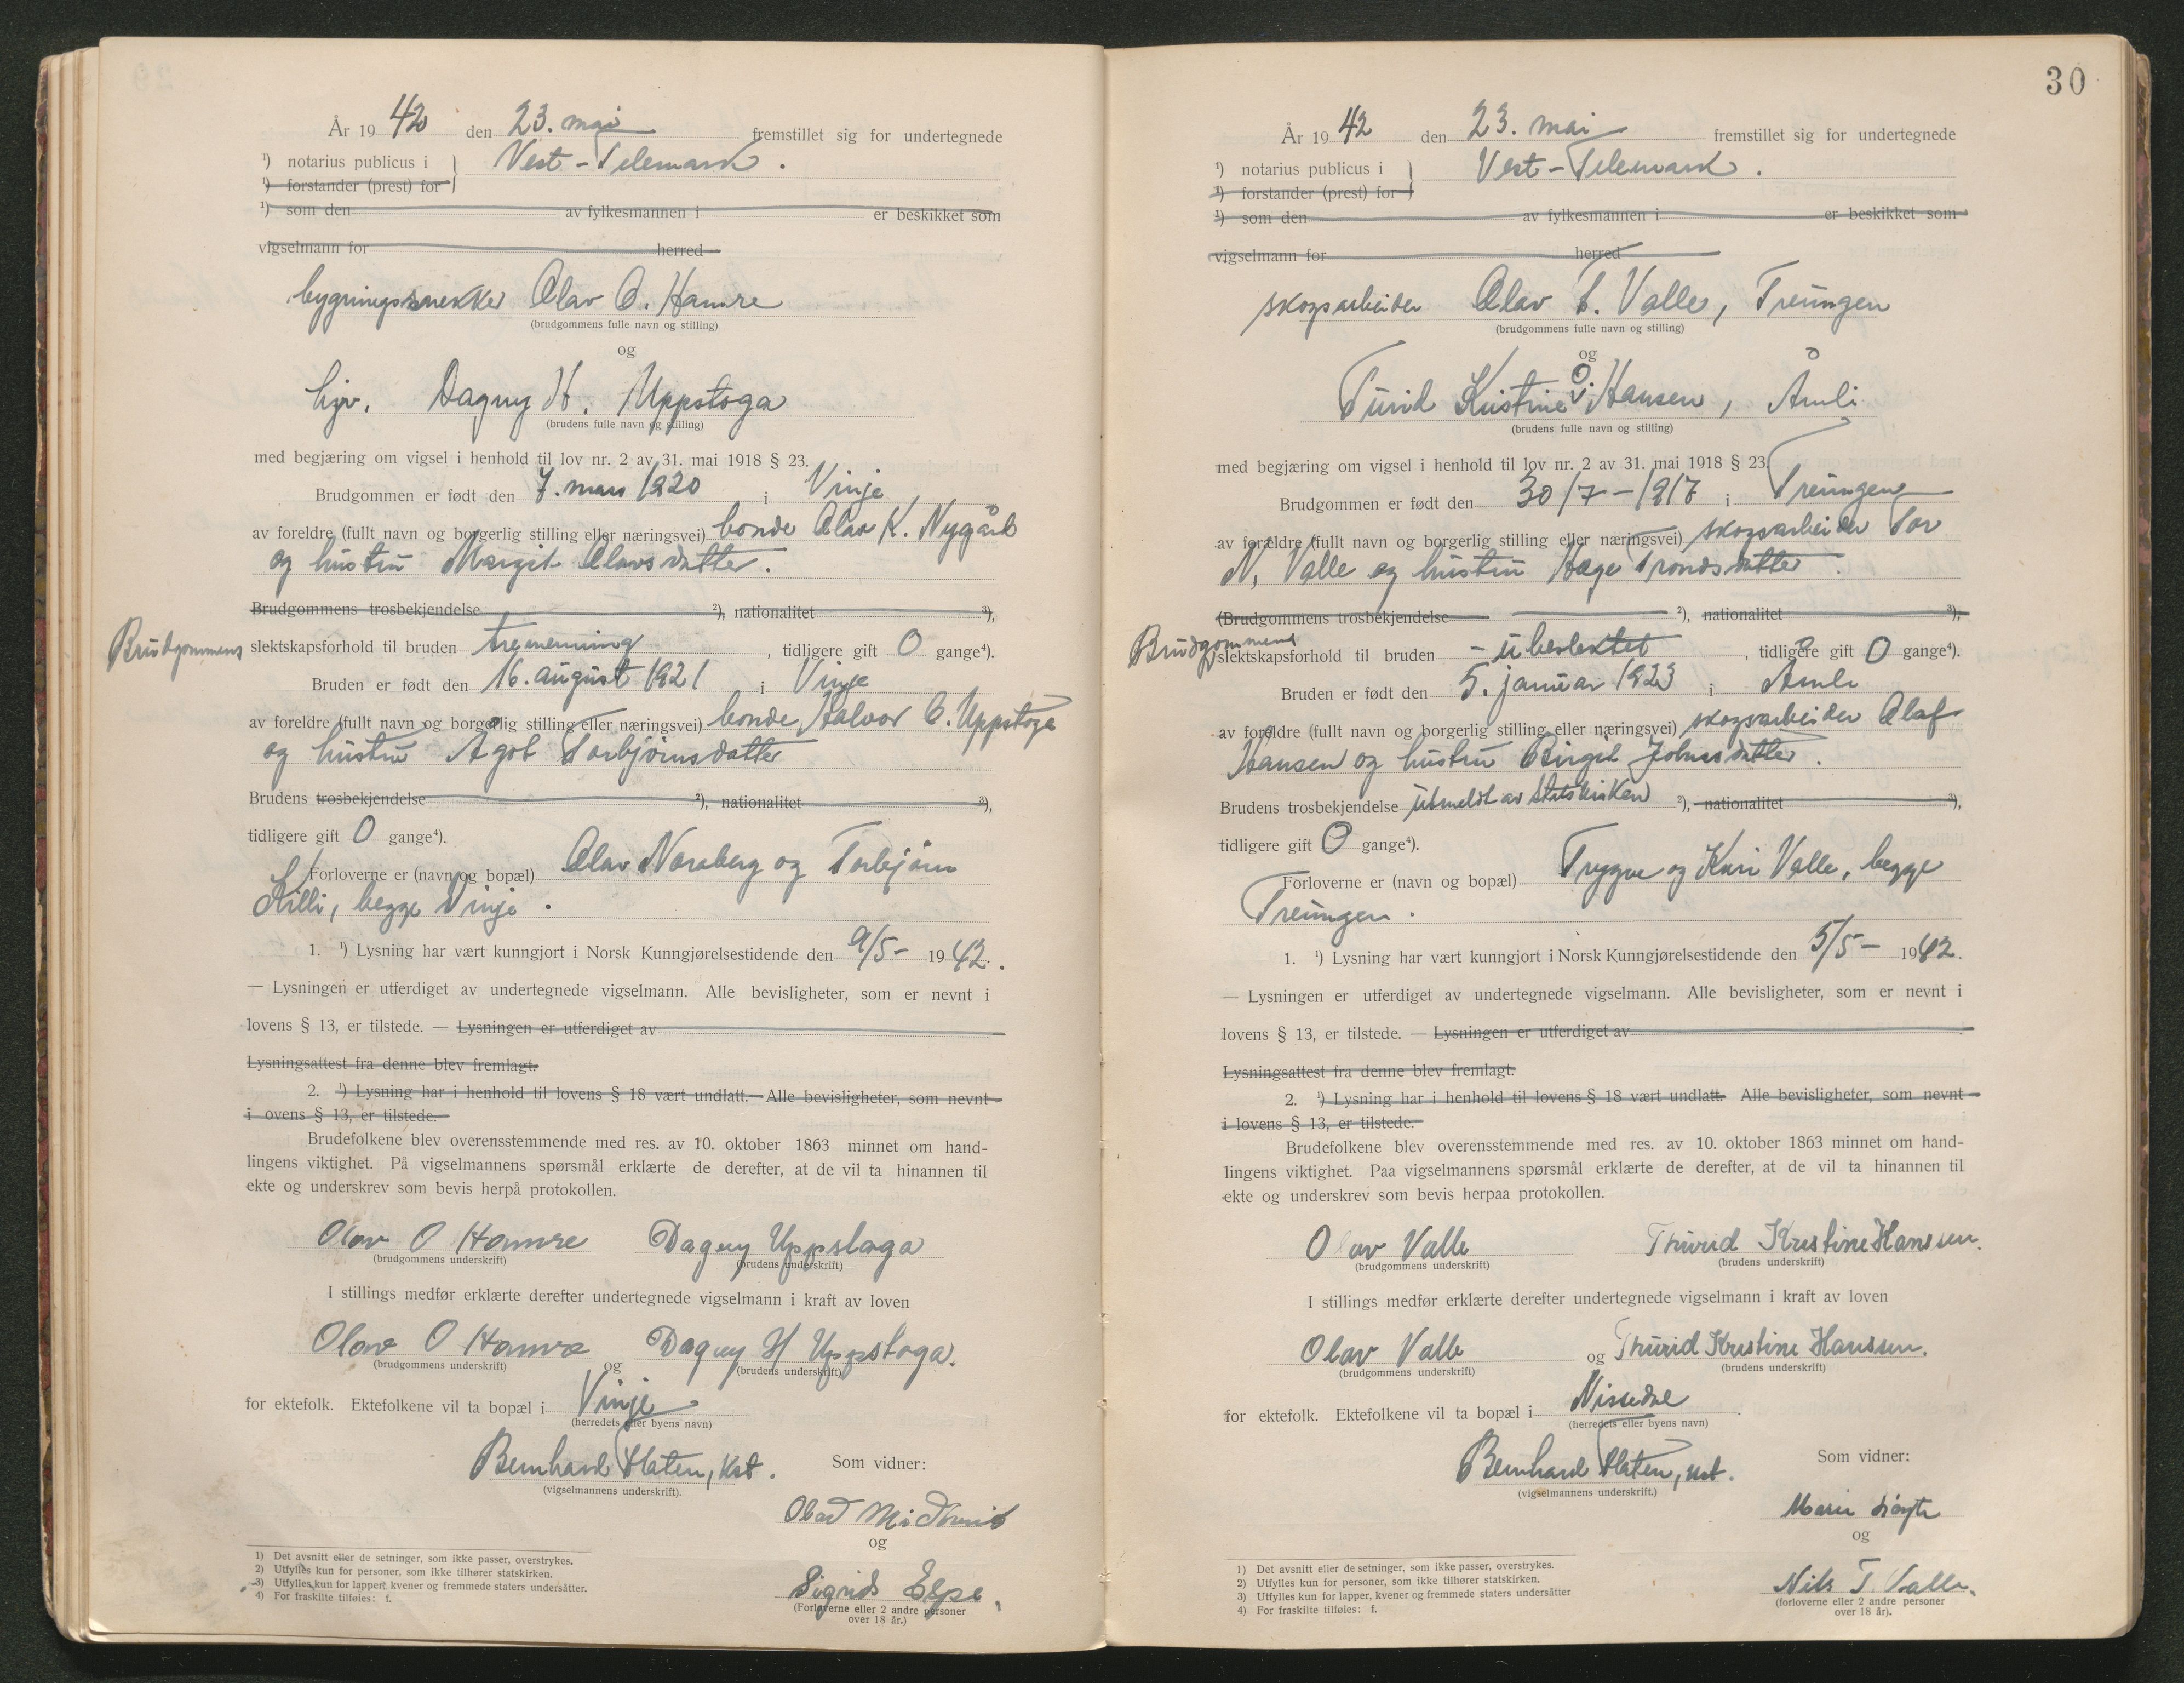 År 1942 den 23. mai fremstillet sig for undertegnede
¹) notarius publicus i Vest-Telemark.
¹) forstander (prest) for
¹) som den av fylkesmannen i er beskikket som
vigselmann for herred
bygningssnekker Olav O. Hamre
(brudgommens fulle navn og stilling)
og
hjv. Dagny H. Uppstoga
(brudens fulle navn og stilling)
med begjæring om vigsel i henhold til lov nr. 2 av 31. mai 1918 § 23.
Brudgommen er født den 7. mars 1920 i Vinje
av foreldre (fullt navn og borgerlig stilling eller næringsvei) bonde Olav K. Nygård
og hustru Margit Olavsdatter.
Brudgommens trosbekjendelse ²), nationalitet ³),
Brudgommens slektskapsforhold til bruden tremenning, tidligere gift 0 gange⁴).
Bruden er født den 16. august 1921 i Vinje
av foreldre (fullt navn og borgerlig stilling eller næringsvei) bonde Halvor O. Uppstoga
og hustru Ågot Torbjørnsdatter
Brudens trosbekjendelse ²), nationalitet ³),
tidligere gift 0 gange⁴).
Forloverne er (navn og bopæl) Olav Noraberg og Torbjørn
Killi, begge Vinje.
1. ¹) Lysning har vært kunngjort i Norsk Kunngjørelsestidende den 9/5- 1942.
— Lysningen er utferdiget av undertegnede vigselmann. Alle bevisligheter, som er nevnt i
lovens § 13, er tilstede. — Lysningen er utferdiget av
Lysningsattest fra denne blev fremlagt.
2. ¹) Lysning har i henhold til lovens § 18 vært undlatt. Alle bevisligheter, som nevnt
i ovens § 13, er tilstede.
Brudefolkene blev overensstemmende med res. av 10. oktober 1863 minnet om hand-
lingens viktighet. På vigselmannens spørsmål erklærte de derefter, at de vil ta hinannen til
ekte og underskrev som bevis herpå protokollen.
Olav O Hamre Dagny Uppstoga
(brudgommens underskrift) (brudens underskrift)
I stillings medfør erklærte derefter undertegnede vigselmann i kraft av loven
Olav O Hamre og Dagny H Uppstoga.
(brudgommens underskrift) (brudens underskrift)
for ektefolk. Ektefolkene vil ta bopæl i Vinje
(herredets eller byens navn)
Bernhard Flaten, kst. Som vidner:
(vigselmannens underskrift).
Olav
og
Sigrid
(Forloverne eller 2 andre personer
over 18 år.)
1) Det avsnitt eller de setninger, som ikke passer, overstrykes.
2) Utfylles kun for personer, som ikke tilhører statskirken.
3) Utfylles kun for lapper, kvener og fremmede staters undersåtter.
4) For fraskilte tilføies: f.
30
År 1942 den 23. mai fremstillet sig for undertegnede
¹) notarius publicus i Vest-Telemark.
¹) forstander (prest) for
¹) som den av fylkesmannen i er beskikket som
vigselmann for herred
skogsarbeider Olav T. Valle, Treungen
(brudgommens fulle navn og stilling)
og
Turid Kristine Hansen, Åmli
(brudens fulle navn og stilling)
med begjæring om vigsel i henhold til lov nr. 2 av 31. mai 1918 § 23.
Brudgommen er født den 30/7-1917 i Treungen
av forældre (fullt navn og borgerlig stilling eller næringsvei) skogsarbeider Tor
N. Valle og hustru Hæge Trondsdatter.
(Brudgommens trosbekjendelse ²), nationalitet ³),
Brudgommens slektskapsforhold til bruden - ubeslektet, tidligere gift 0 gange⁴).
Bruden er født den 5. januar 1923 i Åmli
av foreldre (fullt navn og borgerlig stilling eller næringsvei) skogsarbeider Olaf
Hansen og hustru Birgit Johnsdatter.
Brudens trosbekjendelse utmeldt av statskirken ²), nationalitet ³),
tidligere gift 0 gange⁴).
Forloverne er (navn og bopæl) Trygve og Kari Valle, begge
Treungen.
1. ¹) Lysning har vært kunngjort i Norsk Kunngjørelsestidende den 5/5- 1942.
— Lysningen er utferdiget av undertegnede vigselmann. Alle bevisligheter, som er nevnt i
lovens § 13, er tilstede. — Lysningen er utferdiget av
Lysningsattest fra denne blev fremlagt.
2. ¹) Lysning har i henhold til lovens § 18 vært undlatt. Alle bevisligheter, som nevnt
i lovens § 13, er tilstede.
Brudefolkene blev overensstemmende med res. av 10. oktober 1863 minnet om hand-
lingens viktighet. Paa vigselmannens spørsmål erklærte de derefter, at de vil ta hinannen til
ekte og underskrev som bevis herpaa protokollen.
Olav Valle Thurid Kristine Hanssen.
(brudgommens underskrift) (brudens underskrift)
I stillings medfør erklærte derefter undertegnede vigselmann i kraft av loven
Olav Valle og Thurid Kristine Hanssen.
(brudgommens underskrift) (brudens underskrift)
for ektefolk. Ektefolkene vil ta bopæl i Nissedal
(herredets eller byens navn)
Bernhard Flaten, kst. Som vidner:
(vigselmannens underskrift.)
Marie
og
Nils T. Valle.
(forloverne eller 2 andre personer
over 18 år).
1) Det avsnitt eller de setninger, som ikke passer, overstrykes.
2) Utfylles kun for personer, som ikke tilhører statskirken.
3) Utfylles kun for lapper, kvener og fremmede staters undersåtter
4) For fraskilte tilføies: f.